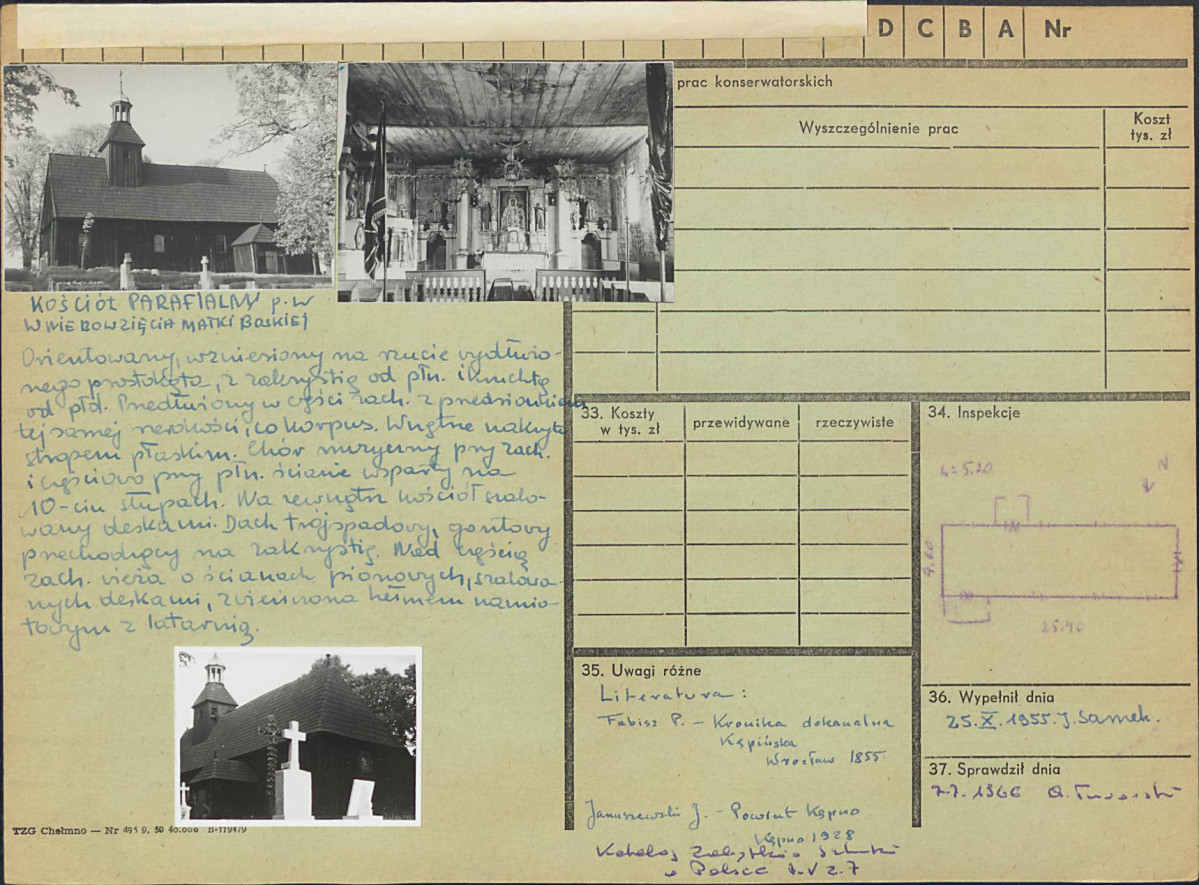 D C B A Nr
prac konserwatorskich
Wyszczególnienie prac
Koszt
tys. zł
KOŚCIÓŁ PARAFIALNY p.w
WNIEBOWZIĘCIA MATKI BOSKIEJ
Orientowany, wzniesiony na rzucie wydłużo-
nego prostokąta, z zakrystią od płn. i kruchtą
od płd. Przedłużony w części zach. z przedsionkiem
tej samej szerokości, co korpus. Wnętrze nakryte
stropem płaskim. Chór muzyczny przy zach.
i częściowo przy płn. ścianie wsparty na
10-ciu słupach. Na zewnątrz kościół szalo-
wany deskami. Dach trójspadowy, gontowy
przechodzący na zakrystię. Nad częścią
zach. wieża o ścianach pionowych, szalowa-
nych deskami, zwieńczona hełmem namio-
towym z latarnią.
TZG Chełmno — Nr 495 9. 59 40.000 B-119479
33. Koszty
w tys. zł
przewidywane
rzeczywiste
34. Inspekcje
h=5.20
N
9.60
25.40
35. Uwagi różne
Literatura:
Fabisz P. — Kronika dekanalna
Kępińska
Wrocław 1855
Januszewski J. — Powiat Kępno
Kępno 1928
Katalog Zabytków Sztuki
w Polsce t. V z. 7
36. Wypełnił dnia
25. X. 1955. J. Samek.
37. Sprawdził dnia
7.7. 1966